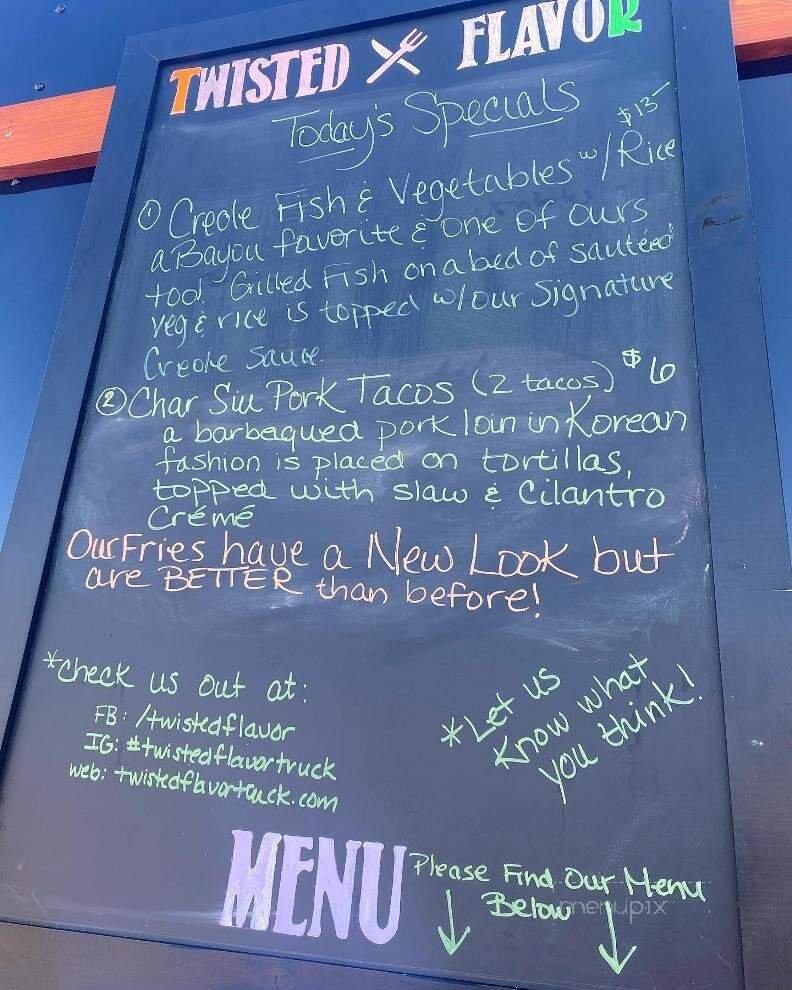 TWISTED FLAVOR
Today's Specials
① Creole Fish & Vegetables w/Rice $13-
a Bayou favorite & one of ours
too! Grilled Fish on a bed of sautéed
veg & rice is topped w/our Signature
Creole Sauce.
② Char Siu Pork Tacos (2 tacos) $6
a barbequed pork loin in Korean
fashion is placed on tortillas,
topped with slaw & Cilantro
Crémé
Our Fries have a New Look but
are BETTER than before!
*Check us out at:
FB: /twistedflavor
IG: #twistedflavortruck
web: twistedflavortruck.com
*Let us
Know what
you think!
MENU
Please Find Our Menu
Below
menupix